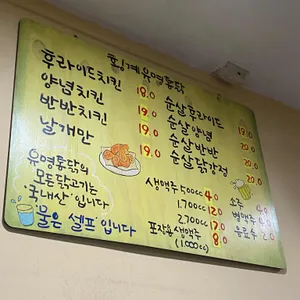 횡계유명통닭
후라이드치킨 18.0
양념치킨 19.0
반반치킨 19.0
날개만 19.0
순살후라이드 19.0
순살양념 20.0
순살반반 20.0
순살닭강정 20.0
유명통닭의
모든닭고기는
"국내산"입니다
"물은 셀프"입니다
생맥주 500cc 4.0
1.700cc 12.0
2.700cc 17.0
포장용생맥주 8.0
(1.000cc)
소주 4.0
병맥주 4.0
음료수 2.0